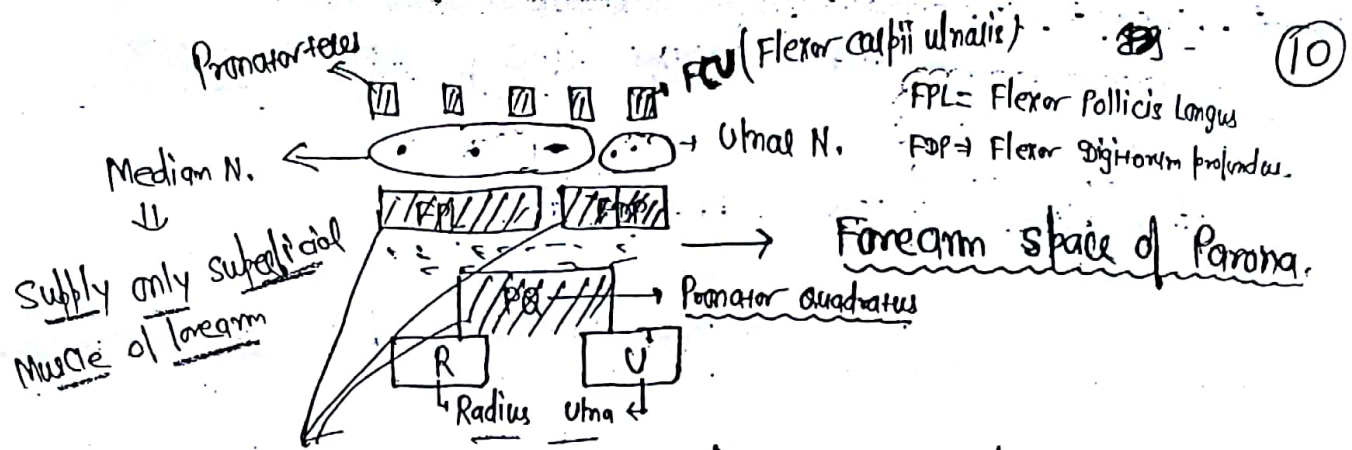 10
Pronator teres
FCU (Flexor carpii ulnalis)
FPL = Flexor Pollicis Longus
Median N.
Ulnal N.
FDP ⇒ Flexor Digitorum profundus.
⇓
FPL
FDP
Supply only superficial
Muscle of forearm
Forearm space of Parona.
PQ → Pronator quadratus
R
U
Radius
Ulna